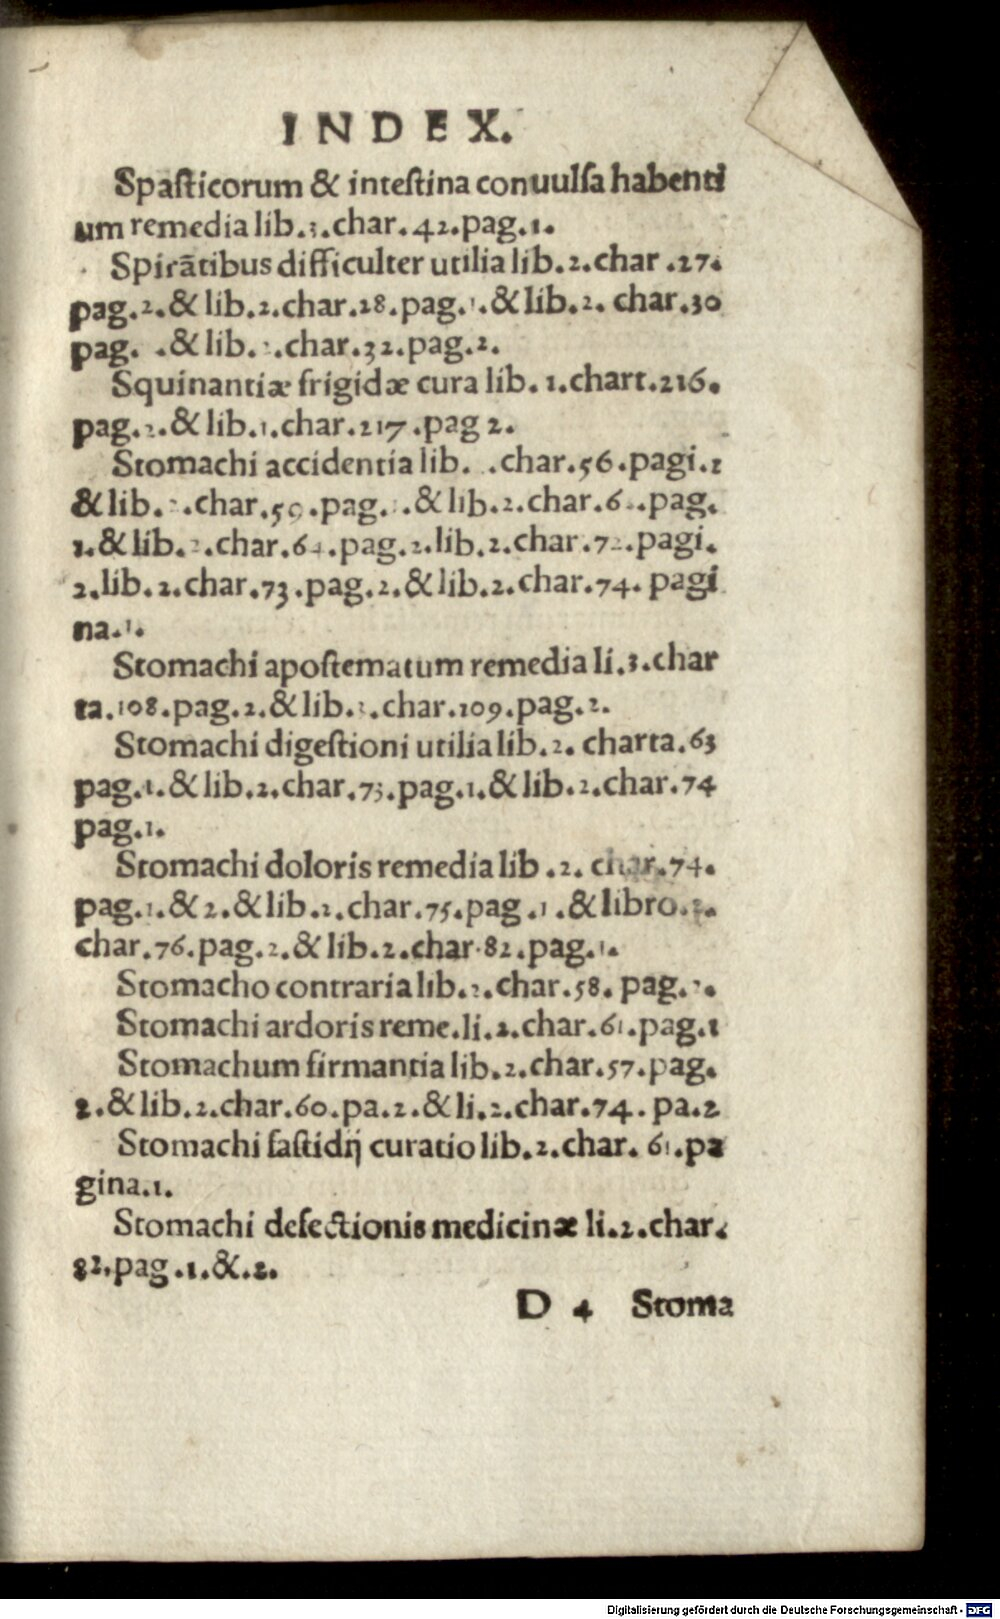 INDEX.
Spasticorum & intestina conuulsa habenti
um remedia lib.3.char.42.pag.1.
Spirātibus difficulter utilia lib.2.char.27.
pag.2.& lib.2.char.28.pag.1.& lib.2. char.30
pag. .& lib. .char.32.pag.2.
Squinantiæ frigidæ cura lib. 1.chart.216.
pag.2.& lib.1.char.217.pag 2.
Stomachi accidentia lib. .char.56.pagi.1
& lib. .char.59.pag. .& lib.2.char.6 .pag.
1.& lib.2.char.64.pag.2.lib.2.char.72.pagi.
2.lib.2.char.73.pag.2.& lib.2.char.74. pagi
na.1.
Stomachi apostematum remedia li.3.char
ta.108.pag.2.& lib.3.char.109.pag.2.
Stomachi digestioni utilia lib.2. charta.63
pag.1.& lib.2.char.73.pag.1.& lib.2.char.74
pag.1.
Stomachi doloris remedia lib.2. char.74.
pag.1.& 2.& lib.2.char.75.pag.1.& libro.2.
char.76.pag.2.& lib.2.char.82.pag.1.
Stomacho contraria lib.2.char.58. pag. .
Stomachi ardoris reme.li.2.char.61.pag.1
Stomachum firmantia lib.2.char.57.pag.
2.& lib.2.char.60.pa.2.& li.2.char.74. pa.2
Stomachi fastidij curatio lib.2.char. 61.pa
gina.1.
Stomachi defectionis medicinæ li.2.char.
82.pag.1.&.2.
D 4 Stoma
Digitalisierung gefördert durch die Deutsche Forschungsgemeinschaft - DFG